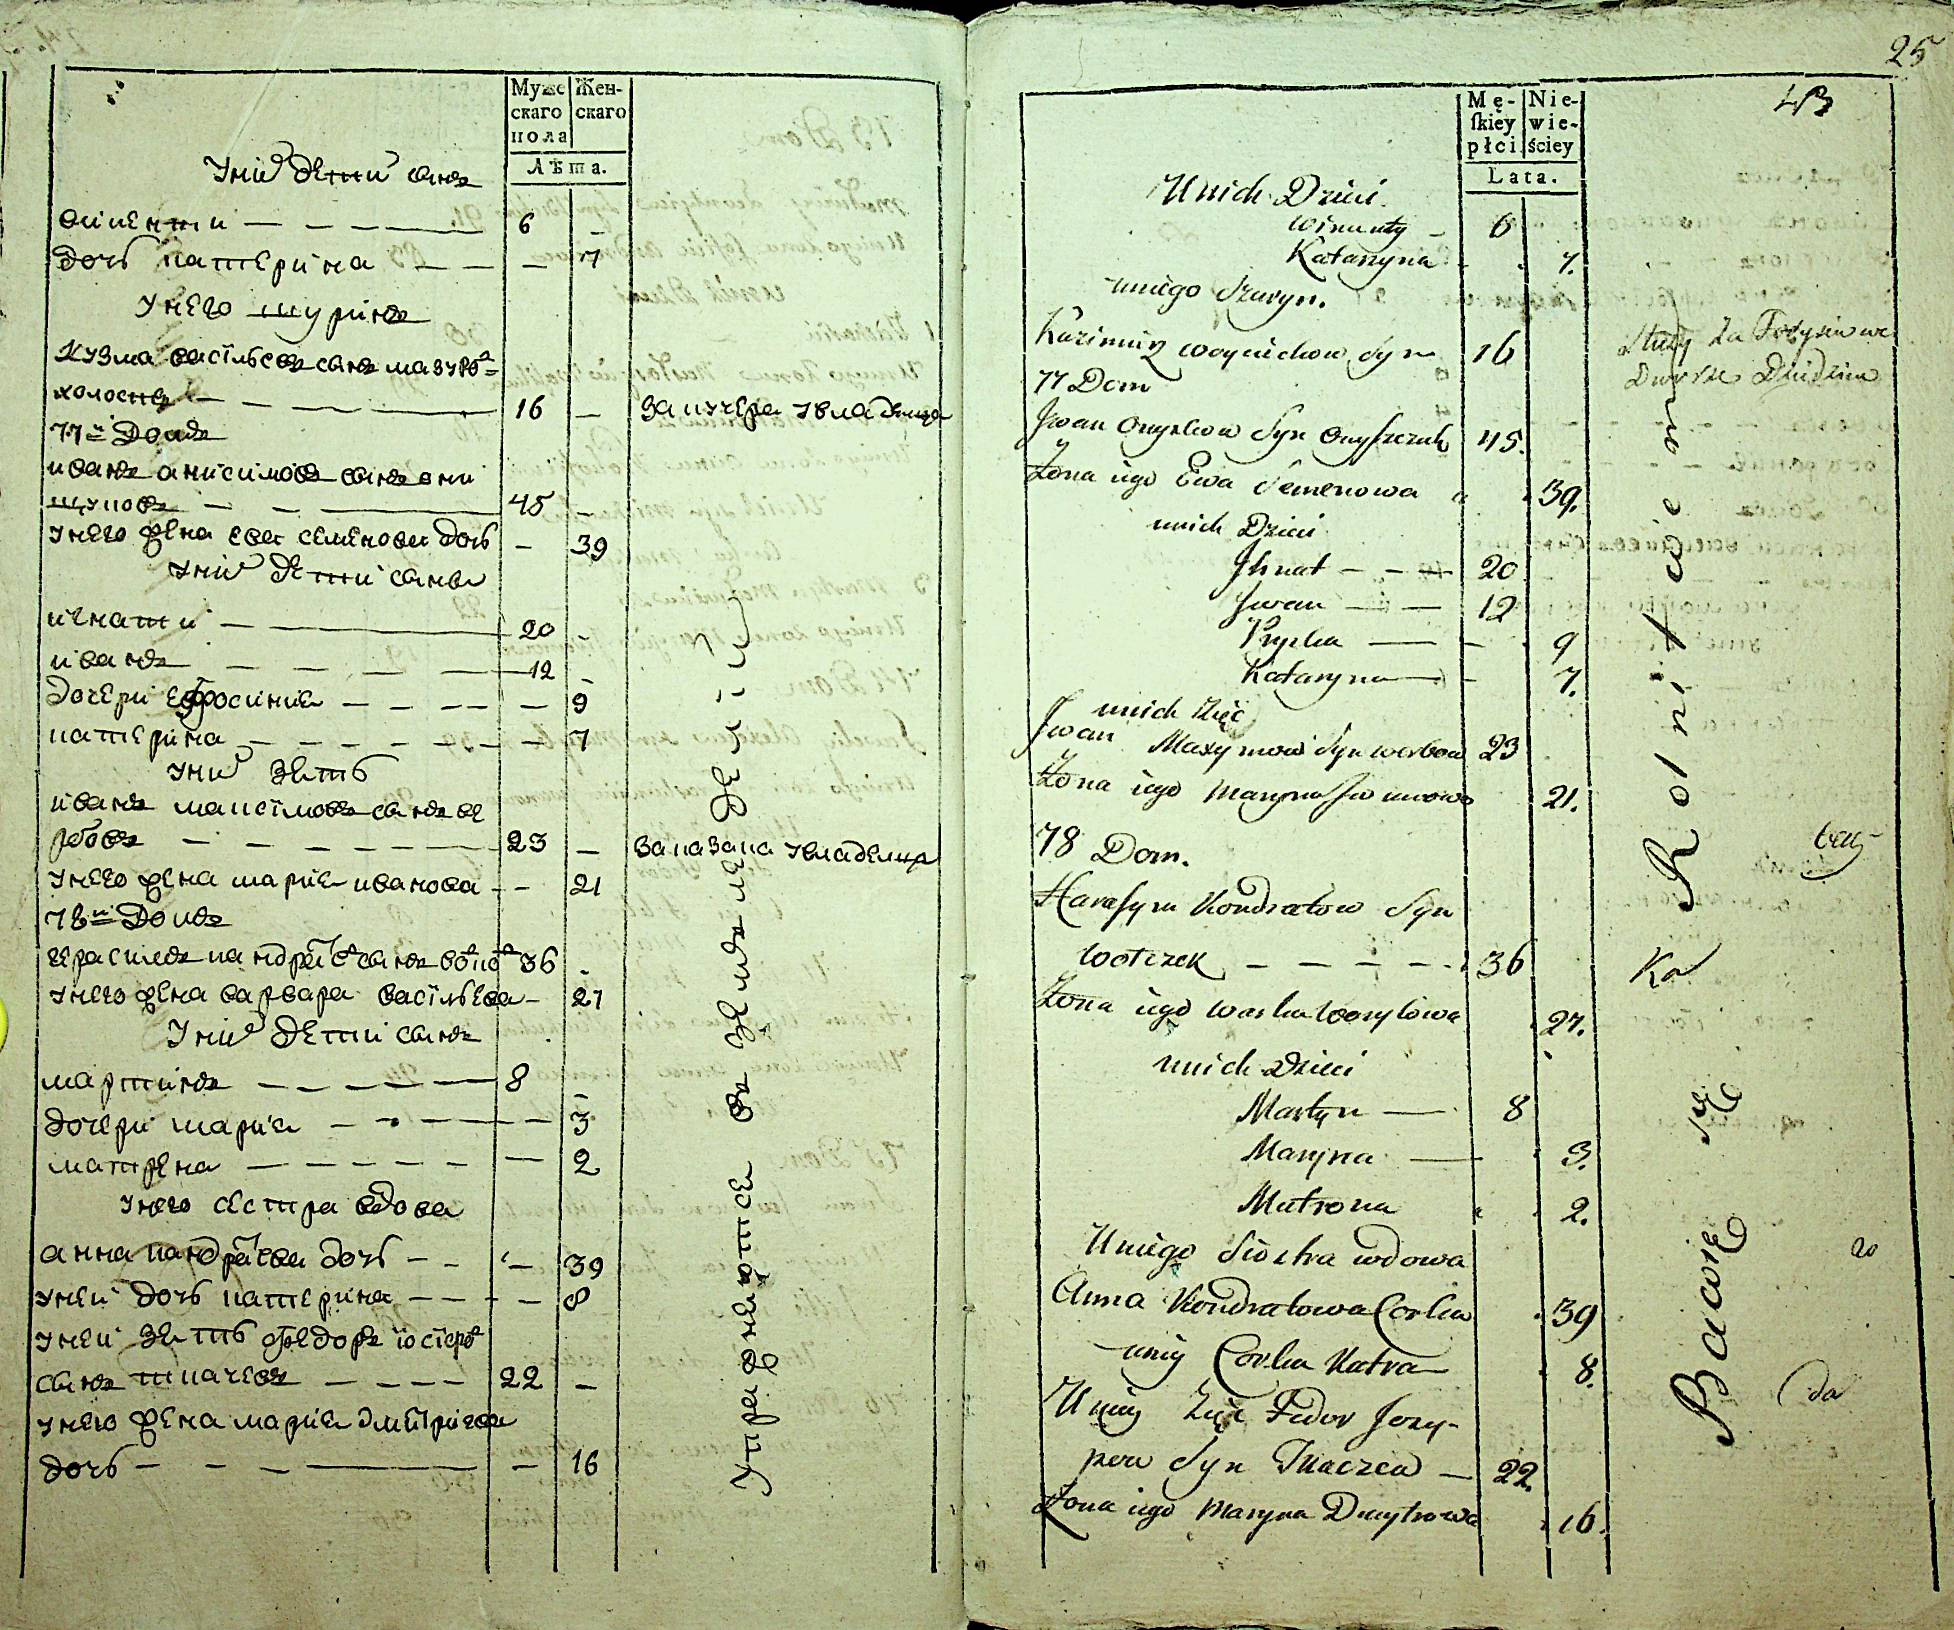 Муже
скаго
пола
Жен-
скаго
Лѣта.
У них дети сынъ
викенти — 6 -
дочь катерина — — 7
У него шуринъ
кузма василъевъ сынъ мазуро
холостъ — 16 — За кучера у владельца
77й Домъ
иванъ анисимовъ сынъ они
щуковъ — 45 -
у него жена ева семенова дочь — 39
у них дети сынви
игнати — 20 -
иванъ — 12 -
дочери ефросиния — — 9
катерина — — 7
у них зять
иванъ максимовъ сынъ ве
рбовъ — 23 — За казака у владельца
у него жена мария иванова — 21
78й Домъ
герасимъ кандратев сынъ 36 -
у него жена варвара василъева — 27
У них дети сынъ
мартинъ — 8 -
дочери мария — — 3
матрена — — 2
У него сестра вдова
анна кандратева дочь — — 39
у ней дочь катерина — — 8
у ней зять федоръ
сынъ ткачевъ — 22 —
у него жена мария дмитриева
дочь — — 16
Упражняются въ земледелии
25
43
Mę-
skiey
płci.
Nie-
wie-
ściey
Lata.
U nich Dzieci.
Winenty — 6
Katarzyna 7.
u niego Szuryn.
Kazimierz Woyciechow Syn 16
77 Dom
Jwan Onyskow Syn Onyszczuk 45.
Żona iego Ewa Semenowa 39.
u nich Dzieci
Jhnat — 20
Jwan — 12
Pryska — 9
Kataryna — 7.
u nich Zięć
Jwan Maxymow Syn Werbow 23
Żona iego Maryna Jwanowa 21.
78 Dom.
Harasym Kondratow Syn
Wotczek — 36
Żona iego Warka Wasylowa 27.
u nich Dzieci
Martyn — 8
Maryna — 3.
Matrona 2.
U niego Siostra wdowa
Anna Kondratowa Corka 39
u niey Corka Katra 8.
U niey Zięć Fedor Jozy-
pow Syn Tkaczew — 22.
Żona iego Maryna Dmytrowa 16.
Służy za
Dworze
Bawię się Rolnictwem